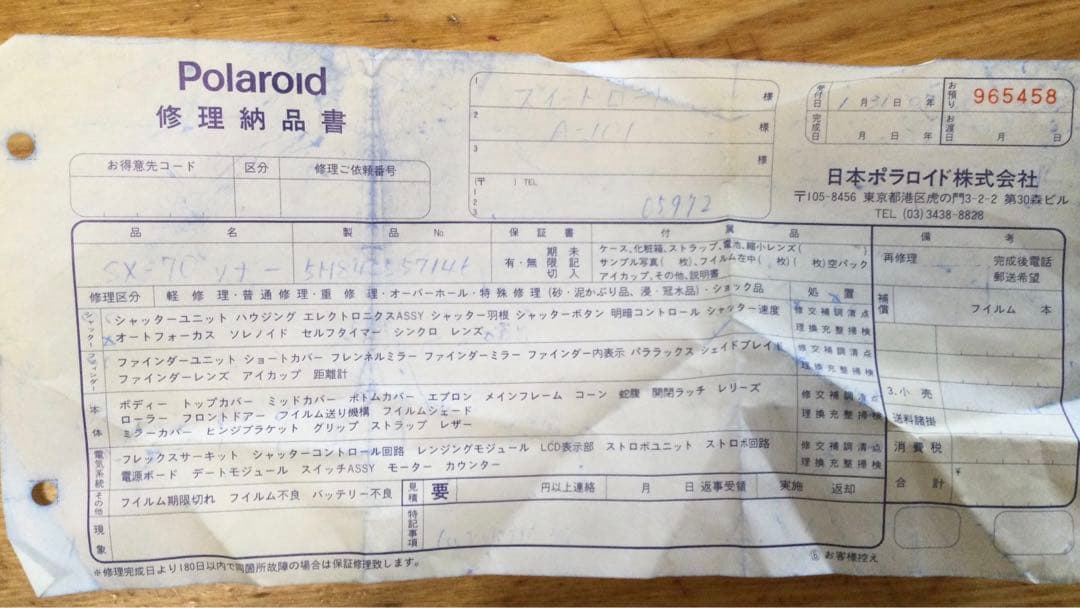 Polaroid
修理納品書
お得意先コード 区分 修理ご依頼番号
1 スイートロード 様
2 A-101 様
3 様
(〒 ) TEL
1
2
3
65972
受付日 1月31日 年
完成日 月 日 年
お預り 965458
お渡日 月 日
日本ポラロイド株式会社
〒105-8456 東京都港区虎の門3-2-2 第30森ビル
TEL (03)3438-8828
品名 製品No 保証書 付属品 備考
SX-70
有・無 期限切 未記入
ケース、化粧箱、ストラップ、電池、縮小レンズ( )
サンプル写真( 枚)、フイルム在中( 枚)( 枚)空パック
アイカップ、その他、説明書
再修理 完成後電話
郵送希望
修理区分 軽修理・普通修理・重修理・オーバーホール・特殊修理(砂・泥かぶり品、浸・冠水品)・ショック品 処置
補償 フイルム 本
シャッター
シャッターユニット ハウジング エレクトロニクスASSY シャッター羽根 シャッターボタン 明暗コントロール シャッター速度
オートフォーカス ソレノイド セルフタイマー シンクロ レンズ
修交補調清点
理換充整掃検
ファインダー
ファインダーユニット ショートカバー フレンネルミラー ファインダーミラー ファインダー内表示 パララックス シェイドブレイド
ファインダーレンズ アイカップ 距離計
修交補調清点
理換充整掃検
本体
ボディー トップカバー ミッドカバー ボトムカバー エプロン メインフレーム コーン 蛇腹 開閉ラッチ レリーズ
ローラー フロントドアー フイルム送り機構 フイルムシェード
ミラーカバー ヒンジブラケット グリップ ストラップ レザー
修交補調清点
理換充整掃検
3.小売
送料諸掛
電気系統
フレックスサーキット シャッターコントロール回路 レンジングモジュール LCD表示部 ストロボユニット ストロボ回路
電源ボード デートモジュール スイッチASSY モーター カウンター
修交補調清点
理換充整掃検
消費税
合計 ¥
その他
フイルム期限切れ フイルム不良 バッテリー不良
見積 要 円以上連絡 月 日 返事受領 実施 返却
現象
特記事項
⑥ お客様控え
※修理完成日より180日以内で同箇所故障の場合は保証修理致します。